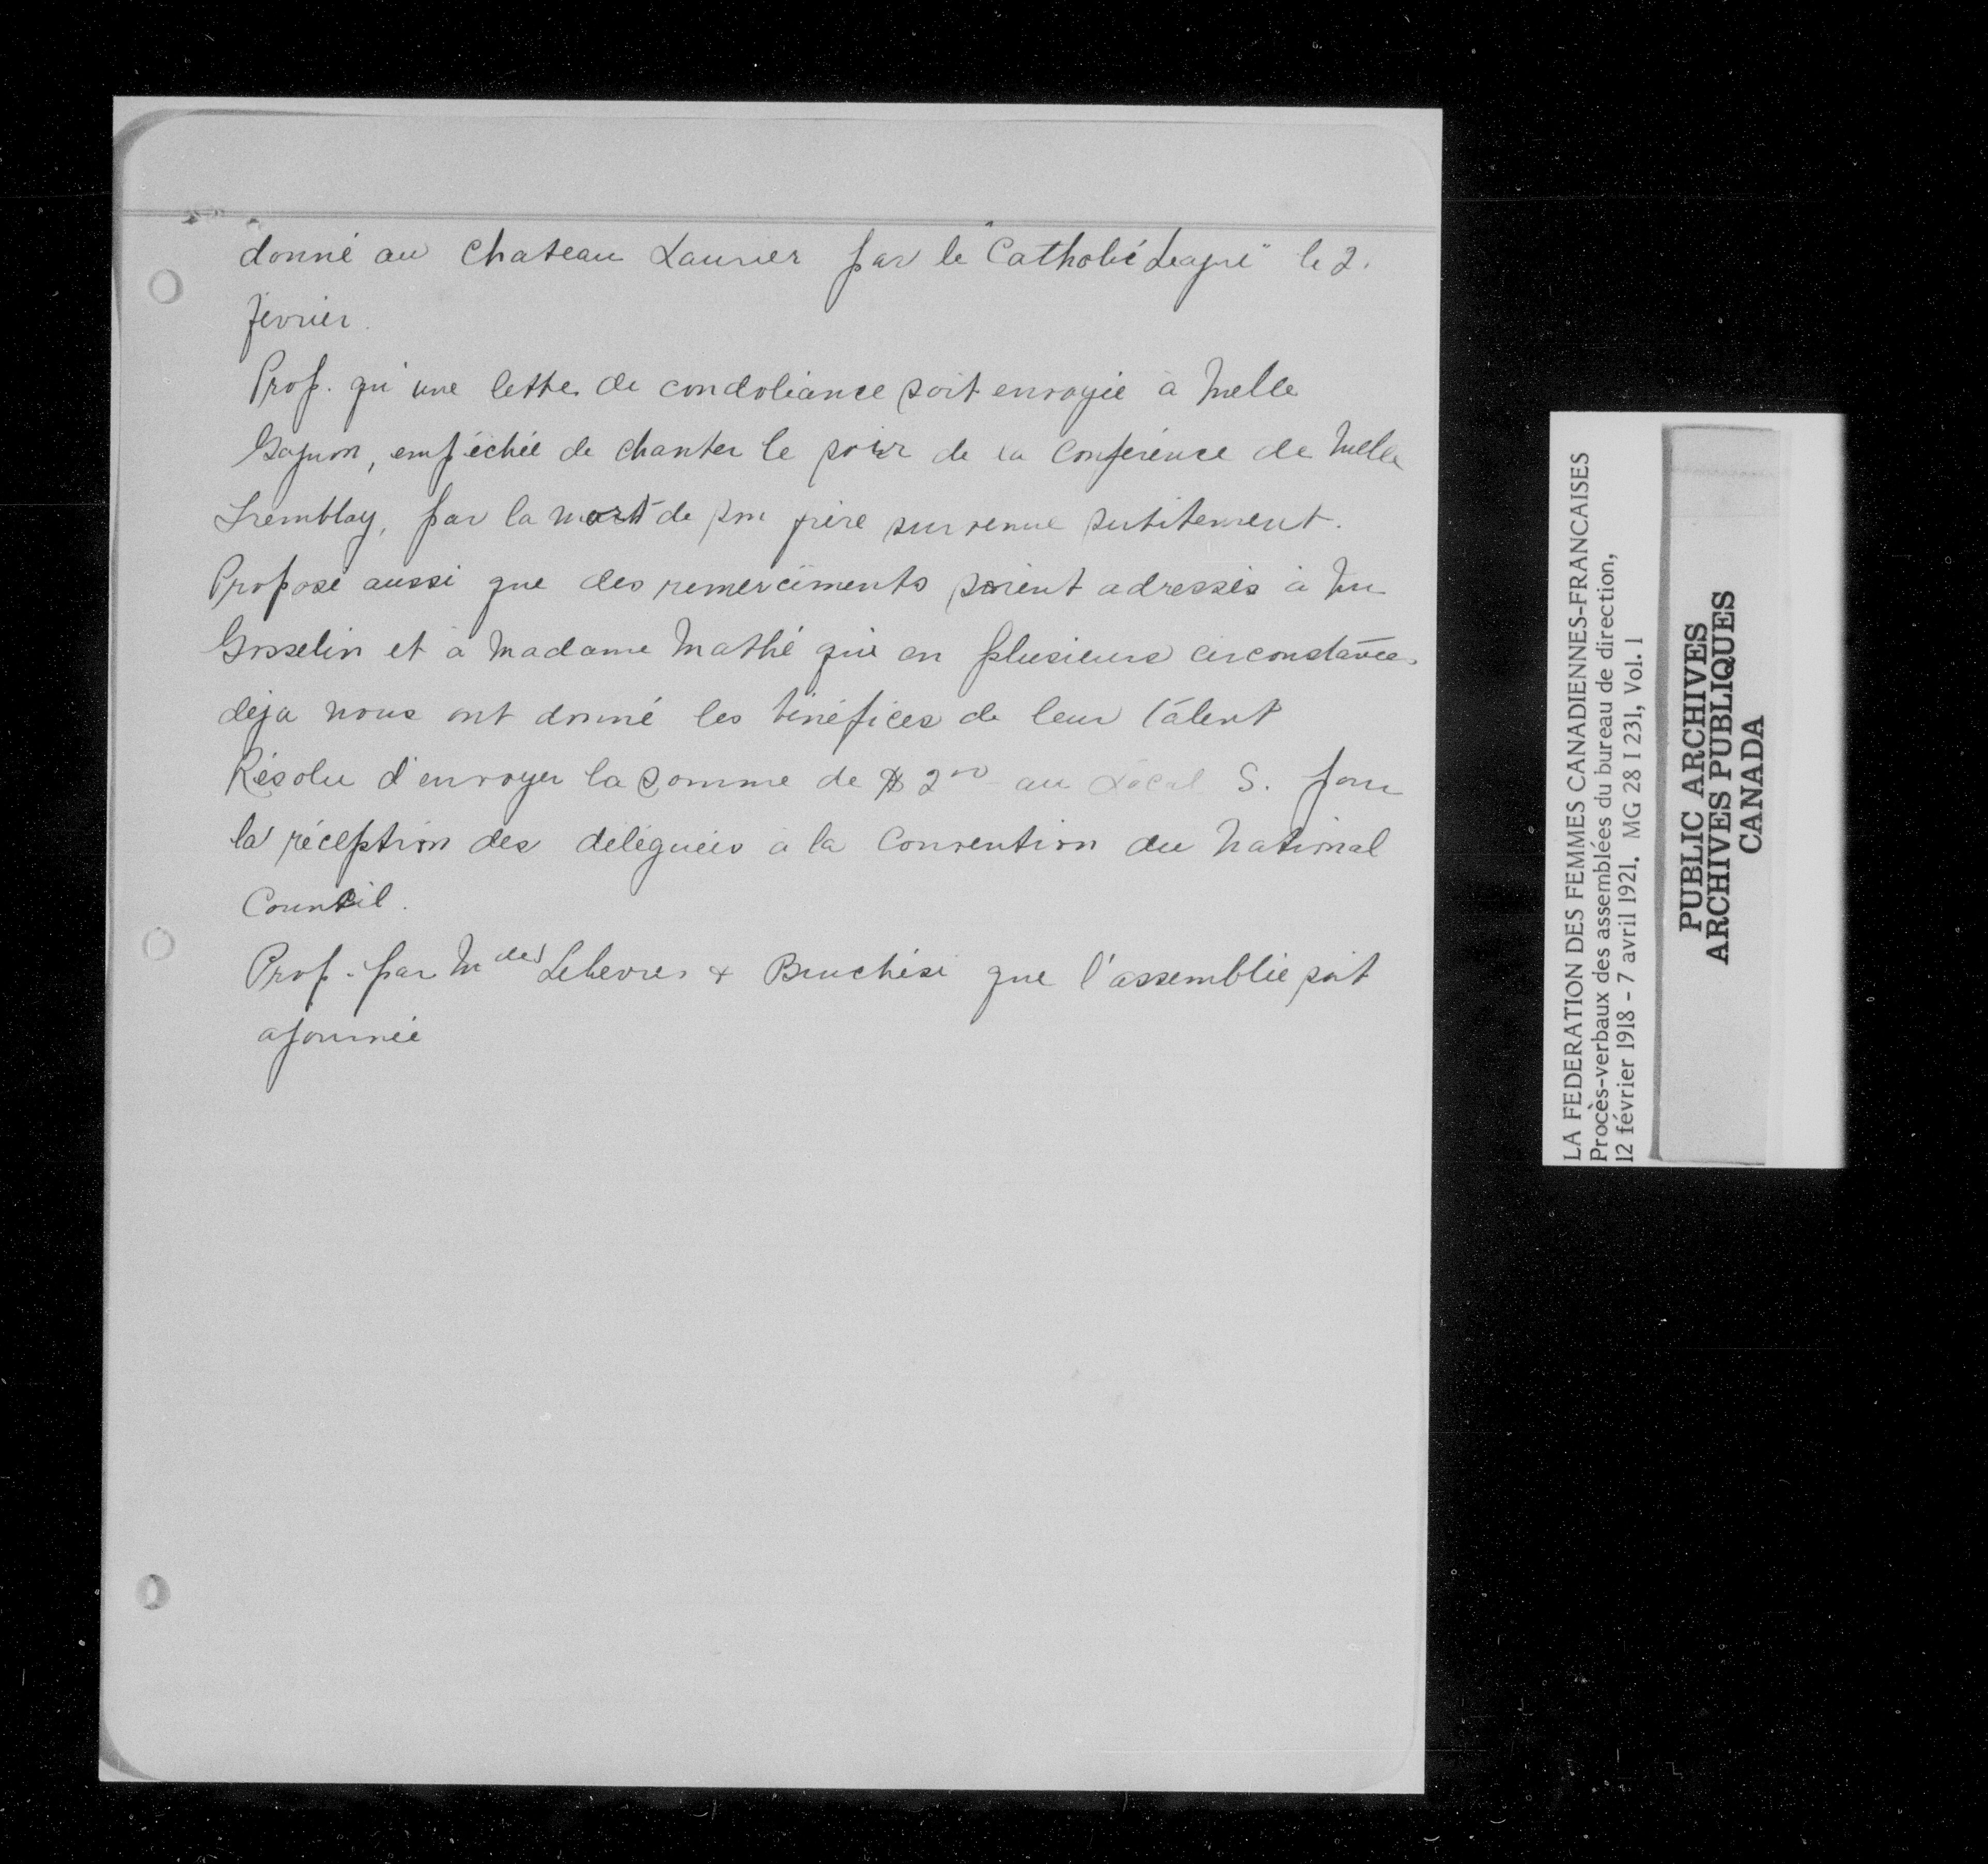 donné au Chateau Laurier par le "Catholic League" le 2.
février.
Prop. qu'une lettre de condoléance soit envoyée à Melle
Gagnon, empêchée de chanter le soir de la Conférence de Melle
Tremblay, par la mort de son père survenue subitement.
Proposé aussi que des remerciments soient adressés à
Gosselin et à Madame Mathé qui en plusieurs circonstances
déja nous ont donné les bénéfices de leur talent
Résolu d'envoyer la somme de $2.00 au Local S. pour
la réception des déléguées à la Convention du National
Council.
Prop. par Mdes Lelievres & Bruchési que l'assemblée soit
ajournée
LA FEDERATION DES FEMMES CANADIENNES-FRANCAISES
Procès-verbaux des assemblées du bureau de direction,
12 février 1918 - 7 avril 1921. MG 28 I 231, Vol. 1
PUBLIC ARCHIVES
ARCHIVES PUBLIQUES
CANADA